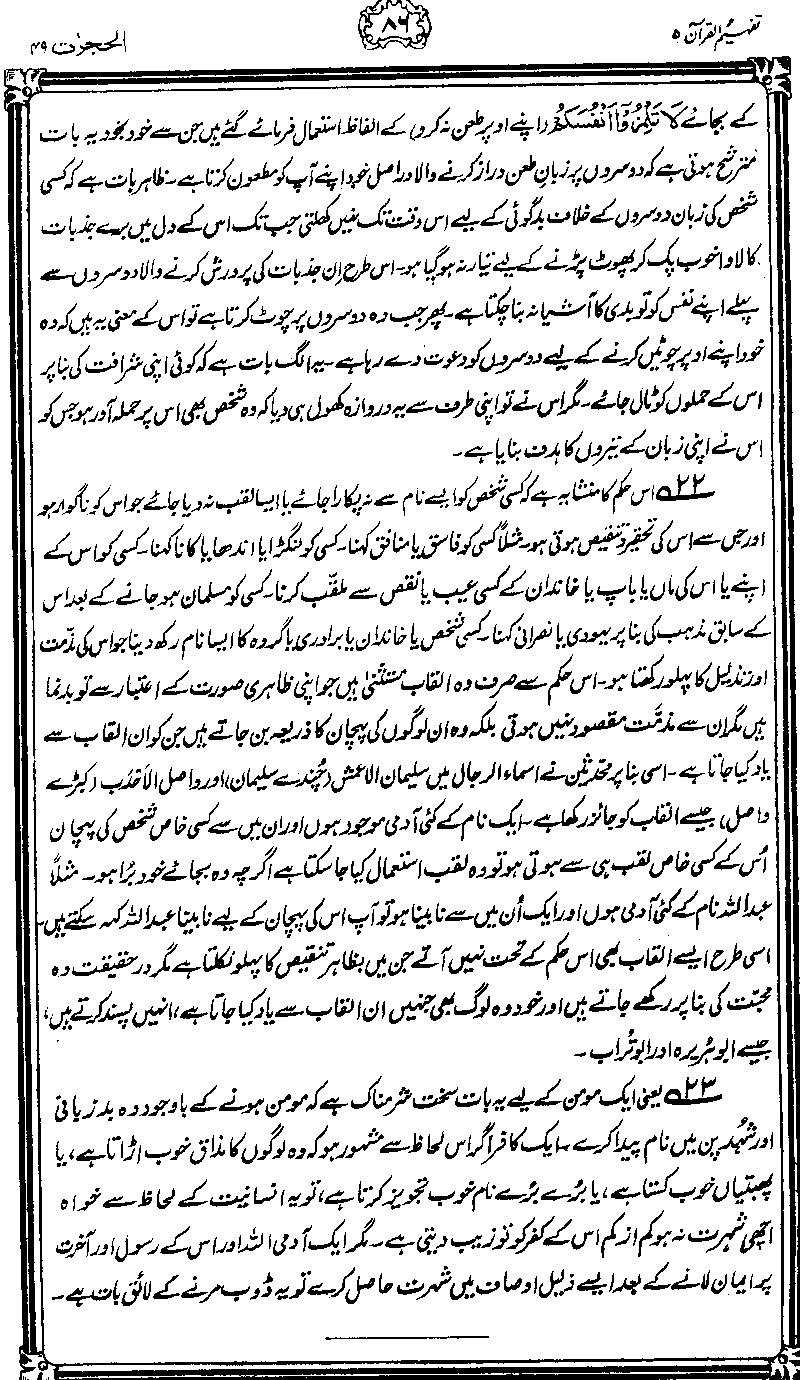 تفہیم القرآن ۵
۸۶
الحجرٰت ۴۹
کے بجائے لَا تَلْمِزُوْٓا اَنْفُسَكُمْ (اپنے اوپر طعن نہ کرو) کے الفاظ استعمال فرمائے گئے ہیں جن سے خود بخود یہ بات
مترشح ہوتی ہے کہ دوسروں پر زبانِ طعن دراز کرنے والا دراصل خود اپنے آپ کو مطعون کرتا ہے۔ ظاہر بات ہے کہ کسی
شخص کی زبان دوسروں کے خلاف بدگوئی کے لیے اس وقت تک نہیں کھلتی جب تک اس کے دل میں برے جذبات
کا لاوا خوب پک کر پھوٹ پڑنے کے لیے تیار نہ ہو گیا ہو۔ اس طرح ان جذبات کی پرورش کرنے والا دوسروں سے
پہلے اپنے نفس کو تو بدی کا آشیانہ بنا چکتا ہے۔ پھر جب وہ دوسروں پر چوٹ کرتا ہے تو اس کے معنی یہ ہیں کہ وہ
خود اپنے اوپر چوٹیں کرنے کے لیے دوسروں کو دعوت دے رہا ہے۔ یہ الگ بات ہے کہ کوئی اپنی شرافت کی بنا پر
اس کے حملوں کو ٹال جائے۔ مگر اس نے تو اپنی طرف سے یہ دروازہ کھول ہی دیا کہ وہ شخص بھی اس پر حملہ آور ہو جس کو
اس نے اپنی زبان کے تیروں کا ہدف بنایا ہے۔
۲۲ اس حکم کا منشا یہ ہے کہ کسی شخص کو ایسے نام سے نہ پکارا جائے یا ایسا لقب نہ دیا جائے جو اس کو ناگوار ہو
اور جس سے اس کی تحقیر و تنقیص ہوتی ہو۔ مثلاً کسی کو فاسق یا منافق کہنا۔ کسی کو لنگڑا یا اندھا یا کانا کہنا۔ کسی کو اس کے
اپنے یا اس کی ماں یا باپ یا خاندان کے کسی عیب یا نقص سے ملقّب کرنا۔ کسی کو مسلمان ہو جانے کے بعد اس
کے سابق مذہب کی بنا پر یہودی یا نصرانی کہنا۔ کسی شخص یا خاندان یا برادری یا گروہ کا ایسا نام رکھ دینا جو اس کی مذمت
اور تذلیل کا پہلو رکھتا ہو۔ اس حکم سے صرف وہ القاب مستثنیٰ ہیں جو اپنی ظاہری صورت کے اعتبار سے تو بدنما
ہیں مگر ان سے مذمّت مقصود نہیں ہوتی بلکہ وہ ان لوگوں کی پہچان کا ذریعہ بن جاتے ہیں جن کو ان القاب سے
یاد کیا جاتا ہے۔ اسی بنا پر محدثین نے اسماء الرجال میں سلیمان الاعمش (چُندے سلیمان) اور واصل الاَحْدَب (کبڑے
واصل) جیسے القاب کو جائز رکھا ہے۔ ایک نام کے کئی آدمی موجود ہوں اور ان میں سے کسی خاص شخص کی پہچان
اُس کے کسی خاص لقب ہی سے ہوتی ہو تو وہ لقب استعمال کیا جا سکتا ہے اگرچہ وہ بجائے خود بُرا ہو۔ مثلاً
عبد اللہ نام کے کئی آدمی ہوں اور ایک اُن میں سے نابینا ہو تو آپ اس کی پہچان کے لیے نابینا عبد اللہ کہہ سکتے ہیں۔
اسی طرح ایسے القاب بھی اس حکم کے تحت نہیں آتے جن میں بظاہر تنقیص کا پہلو نکلتا ہے مگر درحقیقت وہ
محبّت کی بنا پر رکھے جاتے ہیں اور خود وہ لوگ بھی جنہیں ان القاب سے یاد کیا جاتا ہے، انہیں پسند کرتے ہیں،
جیسے ابو ہُریرہ اور ابو تُراب۔
۲۳ یعنی ایک مومن کے لیے یہ بات سخت شرمناک ہے کہ مومن ہونے کے باوجود وہ بد زبانی
اور شُہد پن میں نام پیدا کرے۔ ایک کافر اگر اس لحاظ سے مشہور ہو کہ وہ لوگوں کا مذاق خوب اڑاتا ہے، یا
پھبتیاں خوب کستا ہے، یا بُرے بُرے نام خوب تجویز کرتا ہے، تو یہ انسانیت کے لحاظ سے خواہ
اچھی شہرت نہ ہو کم از کم اس کے کفر کو تو زیب دیتی ہے۔ مگر ایک آدمی اللہ اور اس کے رسول اور آخرت
پر ایمان لانے کے بعد ایسے ذلیل اوصاف میں شہرت حاصل کرے تو یہ ڈوب مرنے کے لائق بات ہے۔